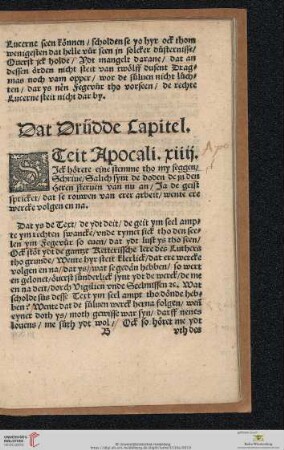 Lucerne seen können / scholden se yo hyr ock thom
wenigesten dat helle vür seen jn solcker düsternisse /
Querst yck holde / Ydt mangelt darane / dat an
dessen örden nicht steit van twölff dusent Drag-
mas noch vam opper / wor de sülven nicht lüch-
ten / dar ys nen Fegevür tho vorseen / de rechte
Lucerne steit nicht dar by.
Dat Drüdde Capitel.
STeit Apocali. xiiij.
Jck hörete eine stemme tho my seggen /
Schrive / Salich synt de doden de jn dem
Heren sterven van nu an / Ja de geist
spricket / dat se rouwen van erer arbeit / wente ere
wercke volgen en na.
Dat ys de Text / de ydt deit / de geit ym seel amp-
te ym rechten swancke / unde rymet sick tho den see-
len ym Fegevür so even / dat ydt lust ys tho seen /
Ock stöt ydt de gantze Ketterische lere des Luthers
tho grunde / Wente hyr steit klerlick / dat ere wercke
volgen en na / dat ys / wat se gegeven hebben / so wert
en gelonet / överst sünderlick synt ydt de werck / de me
en na deit / dorch Vigilien unde Seelmissen etc. Wat
scholde süs desse Text ym seel ampt tho dönde heb-
ben? Wente dat de sülven werck herna folgen / wen
eyner doth ys / moth gewisse war syn / darff nenes
lovens / me süth ydt wol / Ock so höret me ydt
B
uth des